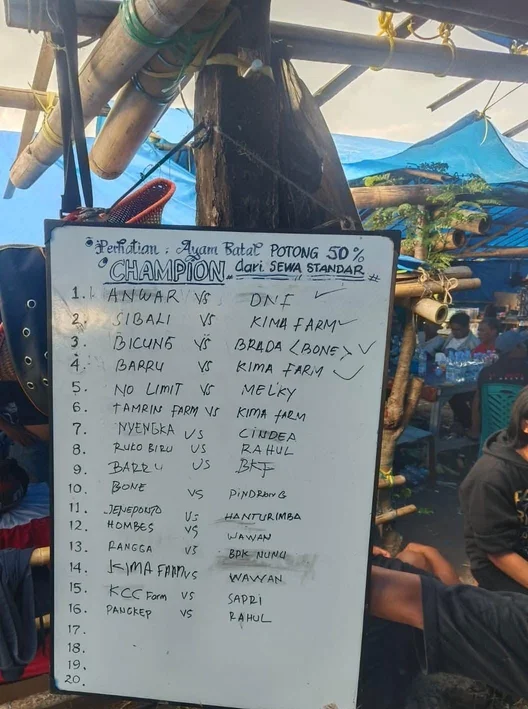 *Perhatian : Ayam Batal POTONG 50%
"CHAMPION" dari SEWA STANDAR #
1. ANWAR VS DNF ✓
2. SIBALI VS KIMA FARM ✓
3. BICUNG VS BRADA (BONE) ✓
4. BARRU VS KIMA FARM ✓
5. NO LIMIT VS MELKY
6. TAMRIN FARM VS KIMA FARM
7. NYENGKA VS CINDEA
8. RUKO BIRU VS RAHUL
9. BARRU VS BKF
10. BONE VS PINDRANG
11. JENEPONTO VS HANTURIMBA
12. HOMBES VS WAWAN
13. RANGGA VS BPK NUNU
14. KIMA FARM VS WAWAN
15. KCC Farm VS SAPRI
16. PANGKEP VS RAHUL
17.
18.
19.
20.